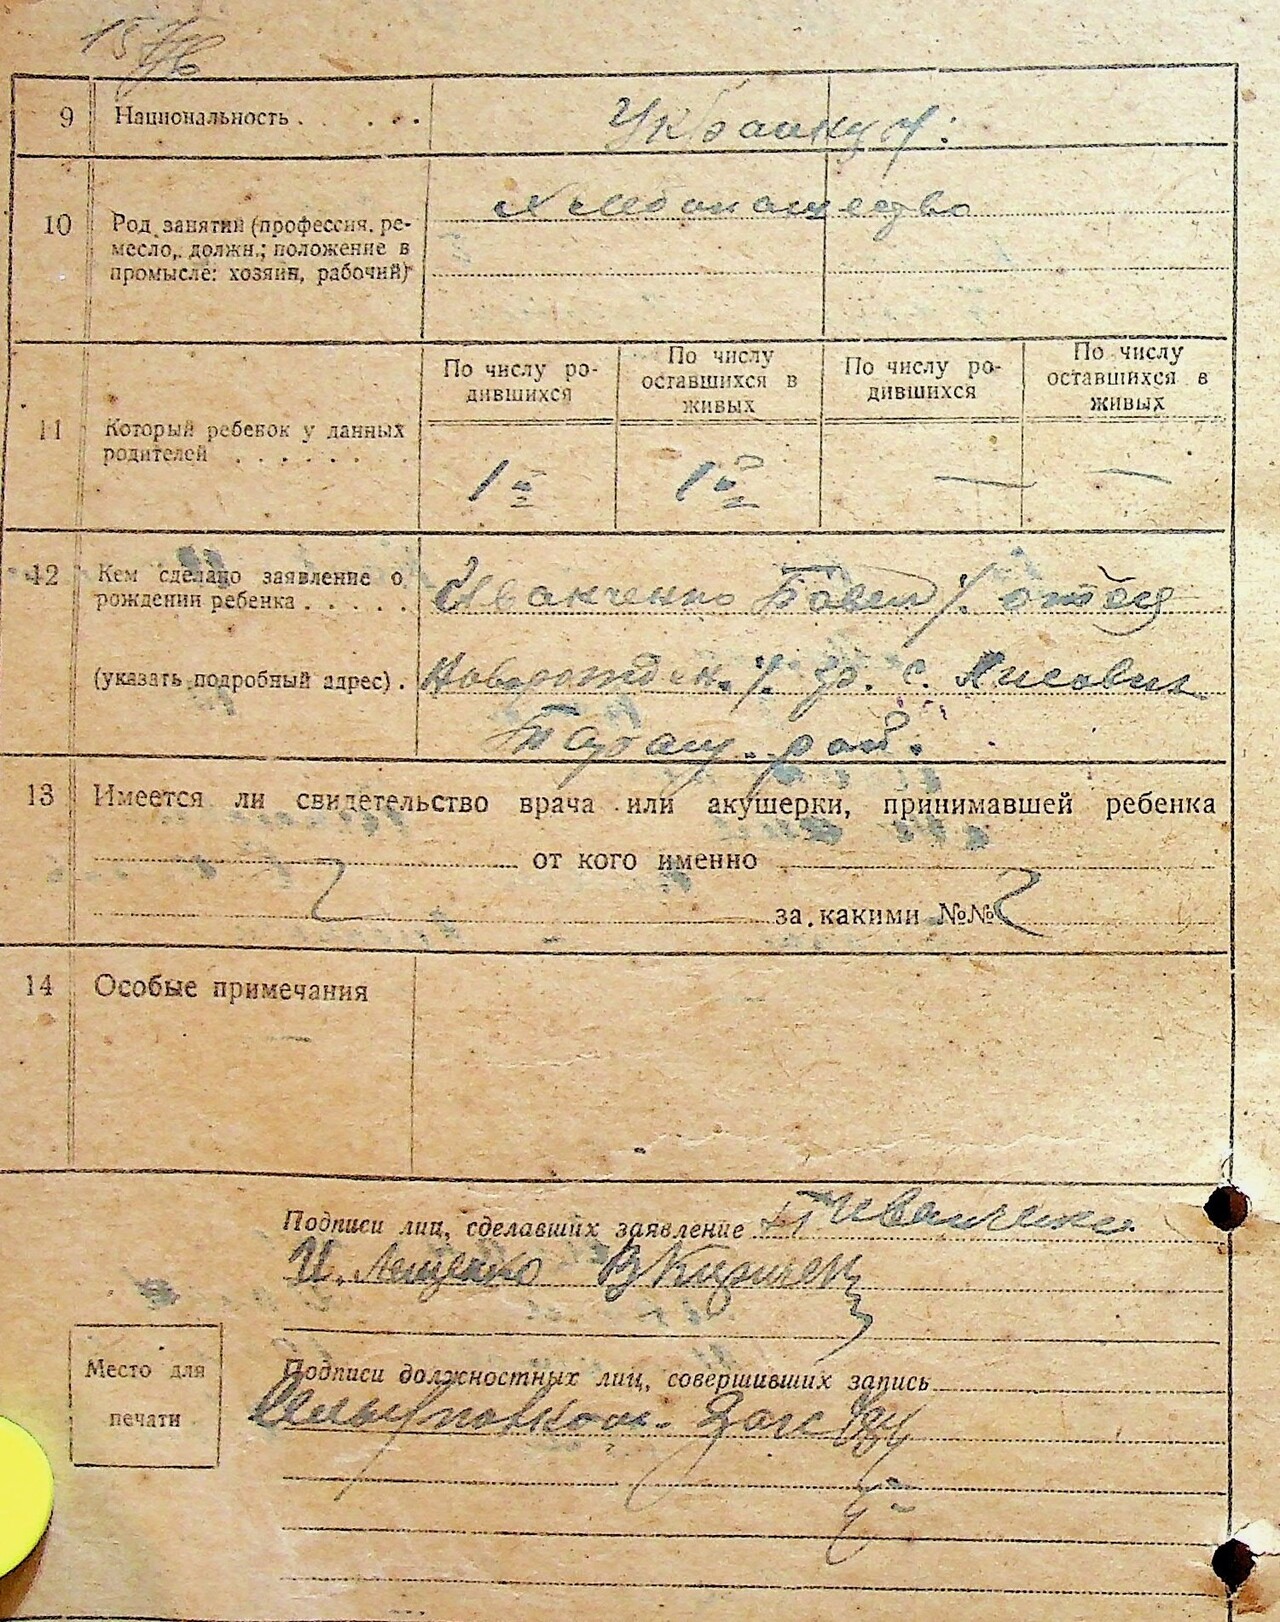 9 Национальность . . . . .
10 Род занятий (профессия, ре-
месло, должн.; положение в
промысле: хозяин, рабочий)
Хлебопашество
По числу ро-
дившихся
По числу
оставшихся в
живых
По числу ро-
дившихся
По числу
оставшихся в
живых
11 Который ребенок у данных
родителей . . . . . .
1й 1й — —
12 Кем сделано заявление о
рождении ребенка . . . . .
Иванченко Павел отец
(указать подробный адрес) .
с.
рай.
13 Имеется ли свидетельство врача или акушерки, принимавшей ребенка
от кого именно
за какими №№
14 Особые примечания
Подписи лиц, сделавших заявление П Иванченко
И. Лещенко
Место для
печати
Подписи должностных лиц, совершивших запись